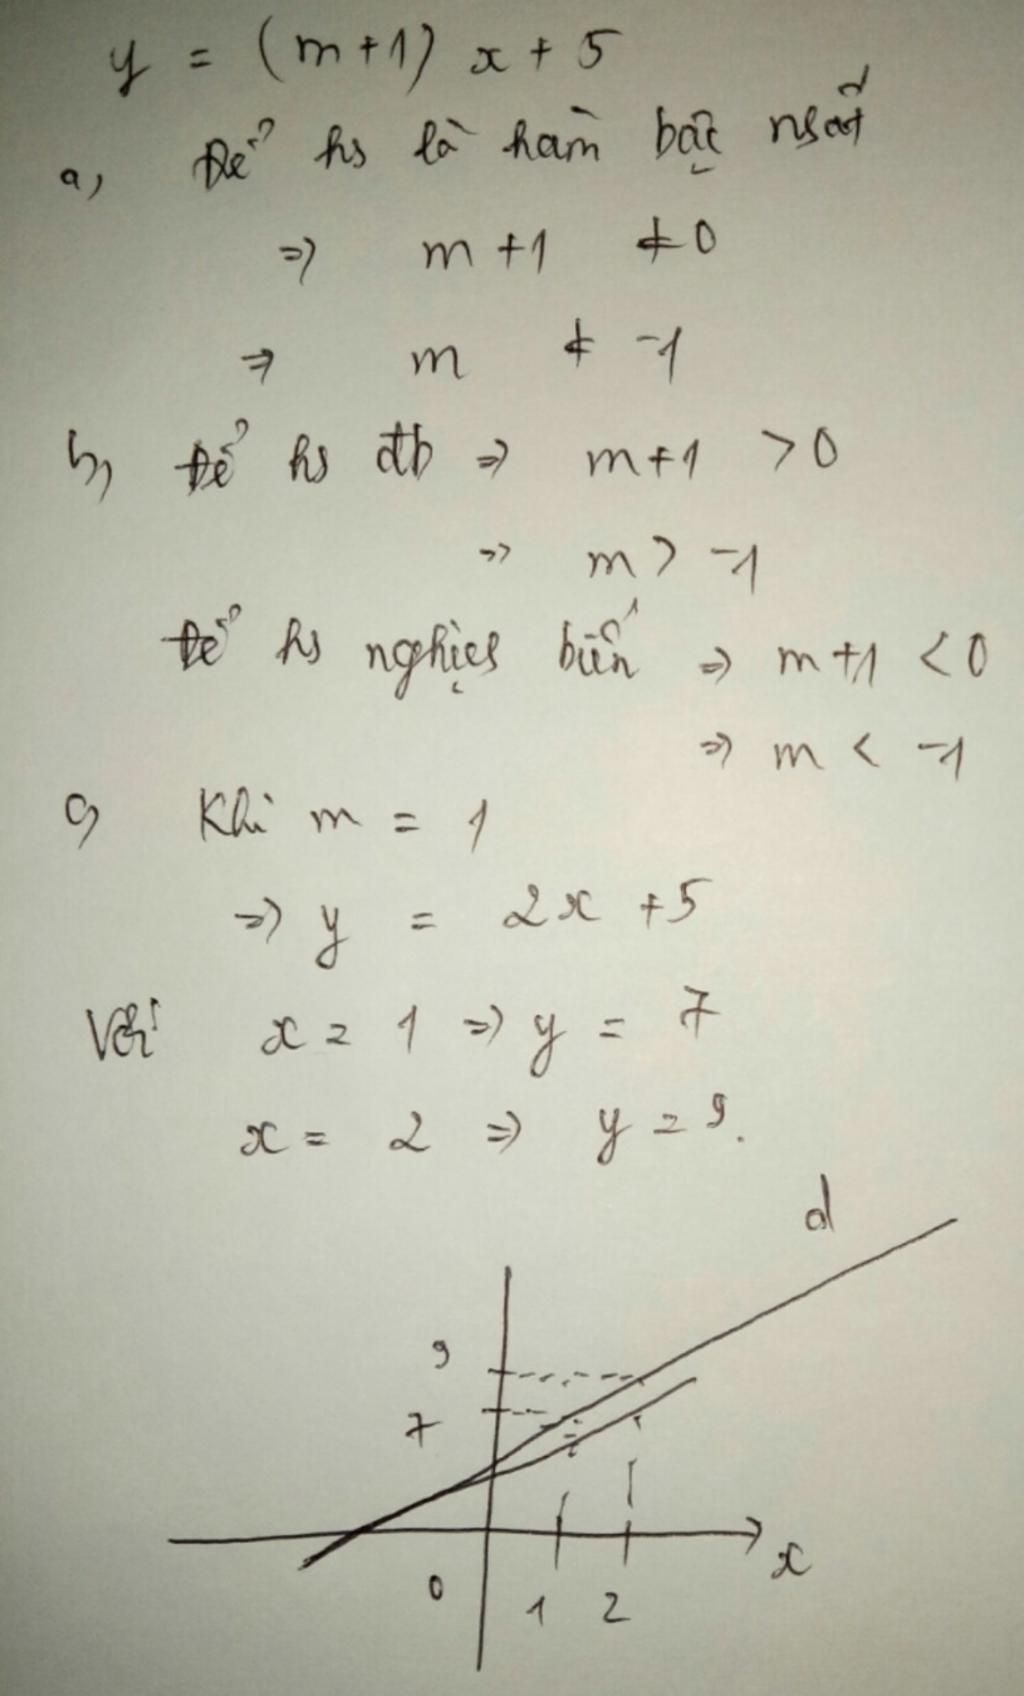 y = (m+1) x + 5
a, Để hs là hàm bậc nhất
=> m+1 ≠ 0
=> m ≠ -1
b, Để hs đb => m+1 > 0
=> m > -1
Để hs nghịch biến => m+1 < 0
=> m < -1
c, Khi m = 1
=> y = 2x + 5
Với x = 1 => y = 7
x = 2 => y = 9.
d
9
7
x
0
1 2